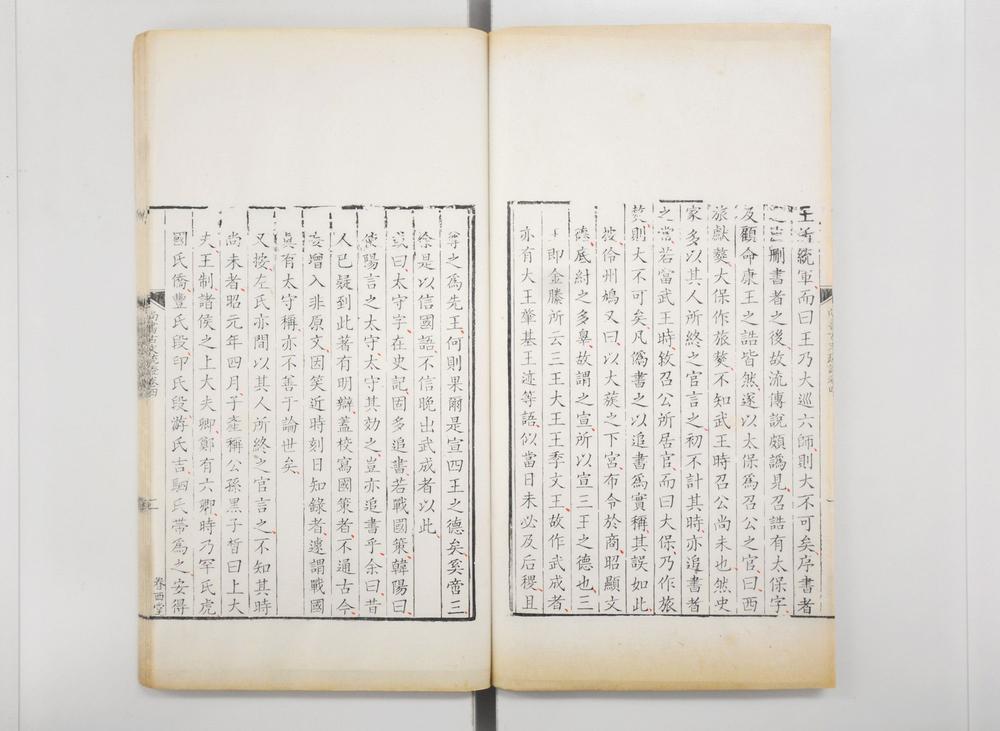 王 統軍而曰王乃大巡六師則大不可矣序書者
之 刪書者之後故流傳說頗譌見召誥有太保字
及顧命康王之誥皆然遂以太保爲召公之官曰西
旅獻獒大保作旅獒不知武王時召公尚未也然史
家多以其人所終之官言之初不計其時亦追書者
之常若當武王時敘召公所居官而曰大保乃作旅
獒則大不可矣凡僞書之以追書爲實稱其誤如此
按伶州鳩又曰以大蔟之下宮布令於商昭顯文
德底紂之多辠故謂之宣所以宣三王之德也三
王即金縢所云三王大王王季文王故作武成者
亦有大王肇基王迹等語似當日未必及后稷且
尊之爲先王何則果爾是宣四王之德矣奚啻三
余是以信國語不信晚出武成者以此
或曰太守字在史記固多追書若戰國策韓陽曰
使陽言之太守太守其効之豈亦追書乎余曰昔
人已疑到此著有明辯蓋校寫國策者不通古今
妄增入非原文因笑近時刻日知錄者遽謂戰國
眞有太守稱亦不善于論世矣
又按左氏亦間以其人所終之官言之不知其時
尚未者昭元年四月子產稱公孫黑子皙曰上大
夫王制諸侯之上大夫卿鄭有六卿時乃罕氏虎
國氏僑豐氏段印氏段游氏吉駟氏帶爲之安得
尚書古文疏證卷四
眷西堂